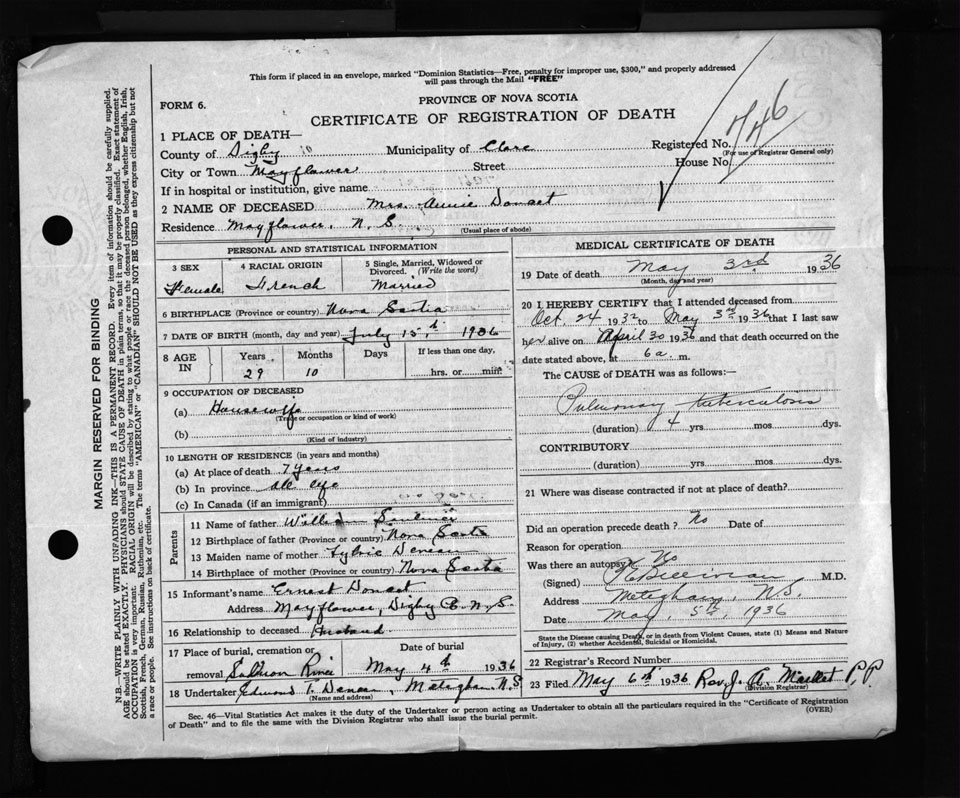 This form if placed in an envelope, marked "Dominion Statistics—Free, penalty for improper use, $300," and properly addressed
will pass through the Mail "FREE"
FORM 6.
PROVINCE OF NOVA SCOTIA
CERTIFICATE OF REGISTRATION OF DEATH
1 PLACE OF DEATH—
County of Digby 10 Municipality of Clare Registered No. 746
(For use of Registrar General only)
City or Town Mayflower Street House No.
If in hospital or institution, give name
2 NAME OF DECEASED Mrs. Annie Doucet
Residence Mayflower, N. S.
(Usual place of abode)
MARGIN RESERVED FOR BINDING
N.B.—WRITE PLAINLY WITH UNFADING INK—THIS IS A PERMANENT RECORD. Every item of information should be carefully supplied.
AGE should be stated EXACTLY. PHYSICIANS should STATE CAUSE OF DEATH in plain terms, so that it may be properly classified. Exact statement of
OCCUPATION is very important. RACIAL ORIGIN will be described by stating to what people or race the deceased person belonged, whether English, Irish,
Scottish, French, German, Russian, Ruthenian, etc. The terms "AMERICAN" or "CANADIAN" SHOULD NOT BE USED as they express citizenship but not
a race or people. See instructions on back of certificate.
PERSONAL AND STATISTICAL INFORMATION
3 SEX 4 RACIAL ORIGIN 5 Single, Married, Widowed or
Divorced. (Write the word)
Female French Married
6 BIRTHPLACE (Province or country) Nova Scotia
7 DATE OF BIRTH (month, day and year) July 15th 1936
8 AGE IN Years Months Days If less than one day,
29 10 hrs. or min.
9 OCCUPATION OF DECEASED
(a) Housewife
(Trade or occupation or kind of work)
(b)
(Kind of industry)
10 LENGTH OF RESIDENCE (in years and months)
(a) At place of death 7 years
(b) In province all life
(c) In Canada (if an immigrant)
Parents
11 Name of father William
12 Birthplace of father (Province or country) Nova Scotia
13 Maiden name of mother Sylvie Deveau
14 Birthplace of mother (Province or country) Nova Scotia
15 Informant's name Ernest Doucet
Address Mayflower, Digby Co. N. S.
16 Relationship to deceased Husband
17 Place of burial, cremation or Date of burial
removal Salmon River May 4th 1936
18 Undertaker Edmond T. Deveau, Meteghan N.S
(Name and address)
MEDICAL CERTIFICATE OF DEATH
19 Date of death May 3rd 1936
(Month, day and year)
20 I HEREBY CERTIFY that I attended deceased from
Oct. 24 1932 to May 3rd 1936 that I last saw
her alive on April 30 1936 and that death occurred on the
date stated above, at 6 a. m.
The CAUSE OF DEATH was as follows:—
Pulmonary tuberculosis
(duration) 4 yrs mos dys.
CONTRIBUTORY
(duration) yrs mos dys.
21 Where was disease contracted if not at place of death?
Did an operation precede death? No Date of
Reason for operation
Was there an autopsy? No
(Signed) M.D.
Address Meteghan, N.S.
Date May 5th, 1936
State the Disease causing Death, or in death from Violent Causes, state (1) Means and Nature
of Injury, (2) whether Accidental, Suicidal or Homicidal.
22 Registrar's Record Number
23 Filed May 6th 1936 Rev. J. A. Maillet P.P.
(Division Registrar)
Sec. 46—Vital Statistics Act makes it the duty of the Undertaker or person acting as Undertaker to obtain all the particulars required in the "Certificate of Registration
of Death" and to file the same with the Division Registrar who shall issue the burial permit.
(OVER)